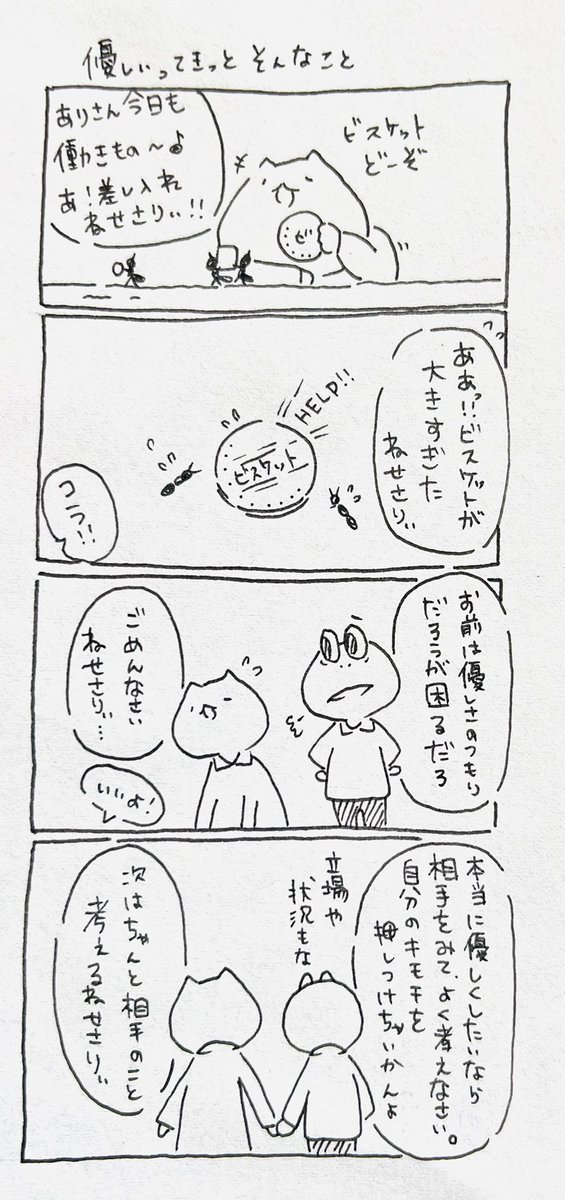 優しいってきっと そんなこと
ありさん今日も
働きもの〜♪
あ!差し入れ
ねせさりぃ!!
ビスケット
どーぞ
ビ
ああ!!ビスケットが
大きすぎた
ねせさりぃ
HELP!!
ビスケット
コラ!!
お前は優しさのつもり
だろうが困るだろ
ごめんなさい
ねせさりぃ…
いいよ!
本当に優しくしたいなら
相手をみて、よく考えなさい。
自分のキモチを
押しつけちゃいかんよ
立場や
状況もな
次はちゃんと相手のこと
考えるねせさりぃ